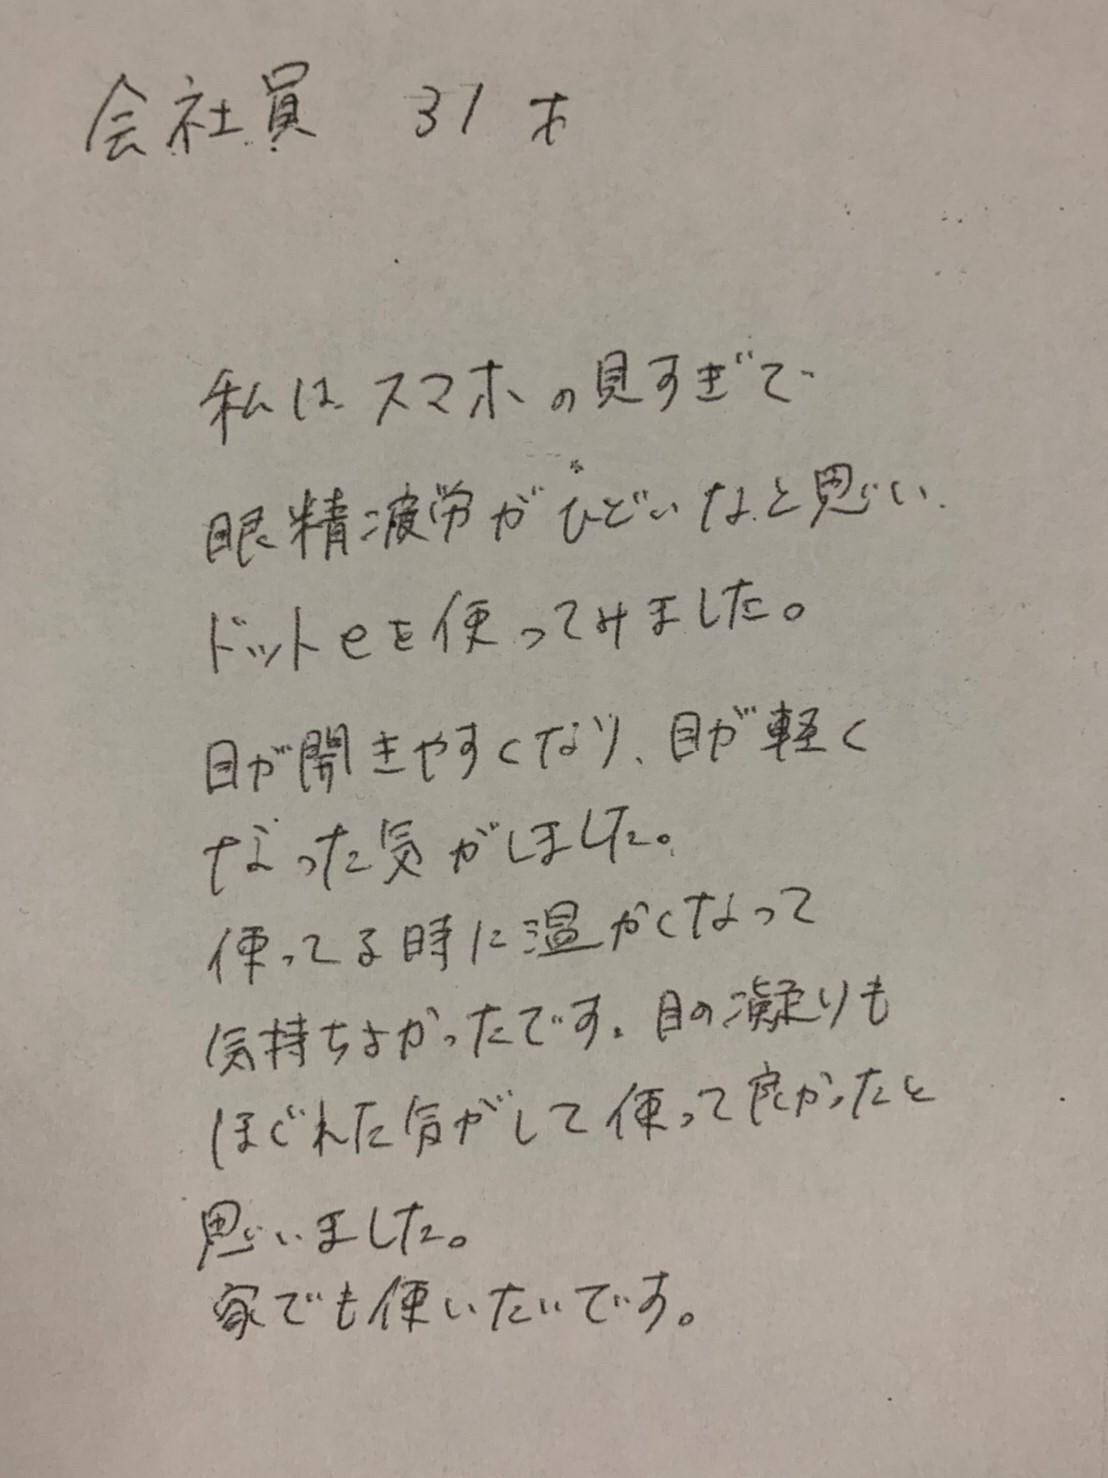 会社員　31才
私はスマホの見すぎで
眼精疲労がひどいなと思い、
ドットeを使ってみました。
目が開きやすくなり、目が軽く
なった気がしました。
使ってる時に温かくなって
気持ちよかったです。目の凝りも
ほぐれた気がして使って良かったと
思いました。
家でも使いたいです。